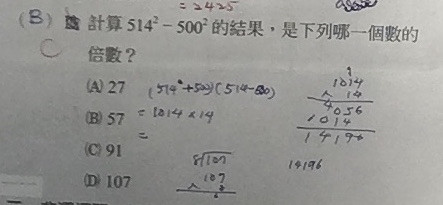 = 2425
(B) 計算 514² − 500² 的結果,是下列哪一個數的
C 倍數?
(A) 27 (514²+500)(514-500)
(B) 57 = 1014 × 14
=
(C) 91
(D) 107
1014
× 14
4056
1014
14196
8√107
107
14196